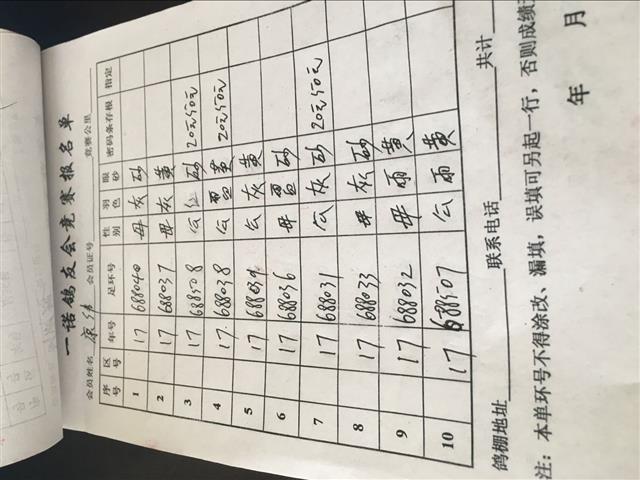 一诺鸽友会竞赛报名单
会员姓名 康 会员证号 竞赛公里
序号 区号 年号 足环号 性别 羽色 眼砂 密码条存根 指定
1 17 688040 母 灰 砂
2 17 688037 母 灰 黄
3 17 688508 公 红 砂 20元50元
4 17 688038 公 雨 黄 20元50元
5 17 688039 公 灰 黄
6 17 688036 母 雨 砂
7 17 688031 公 灰 砂 20元50元
8 17 688033 母 灰 砂
9 17 688032 母 雨 黄
10 17 688507 公 雨 黄
鸽棚地址 联系电话 共计
注：本单环号不得涂改、漏填，误填可另起一行，否则成绩
年 月